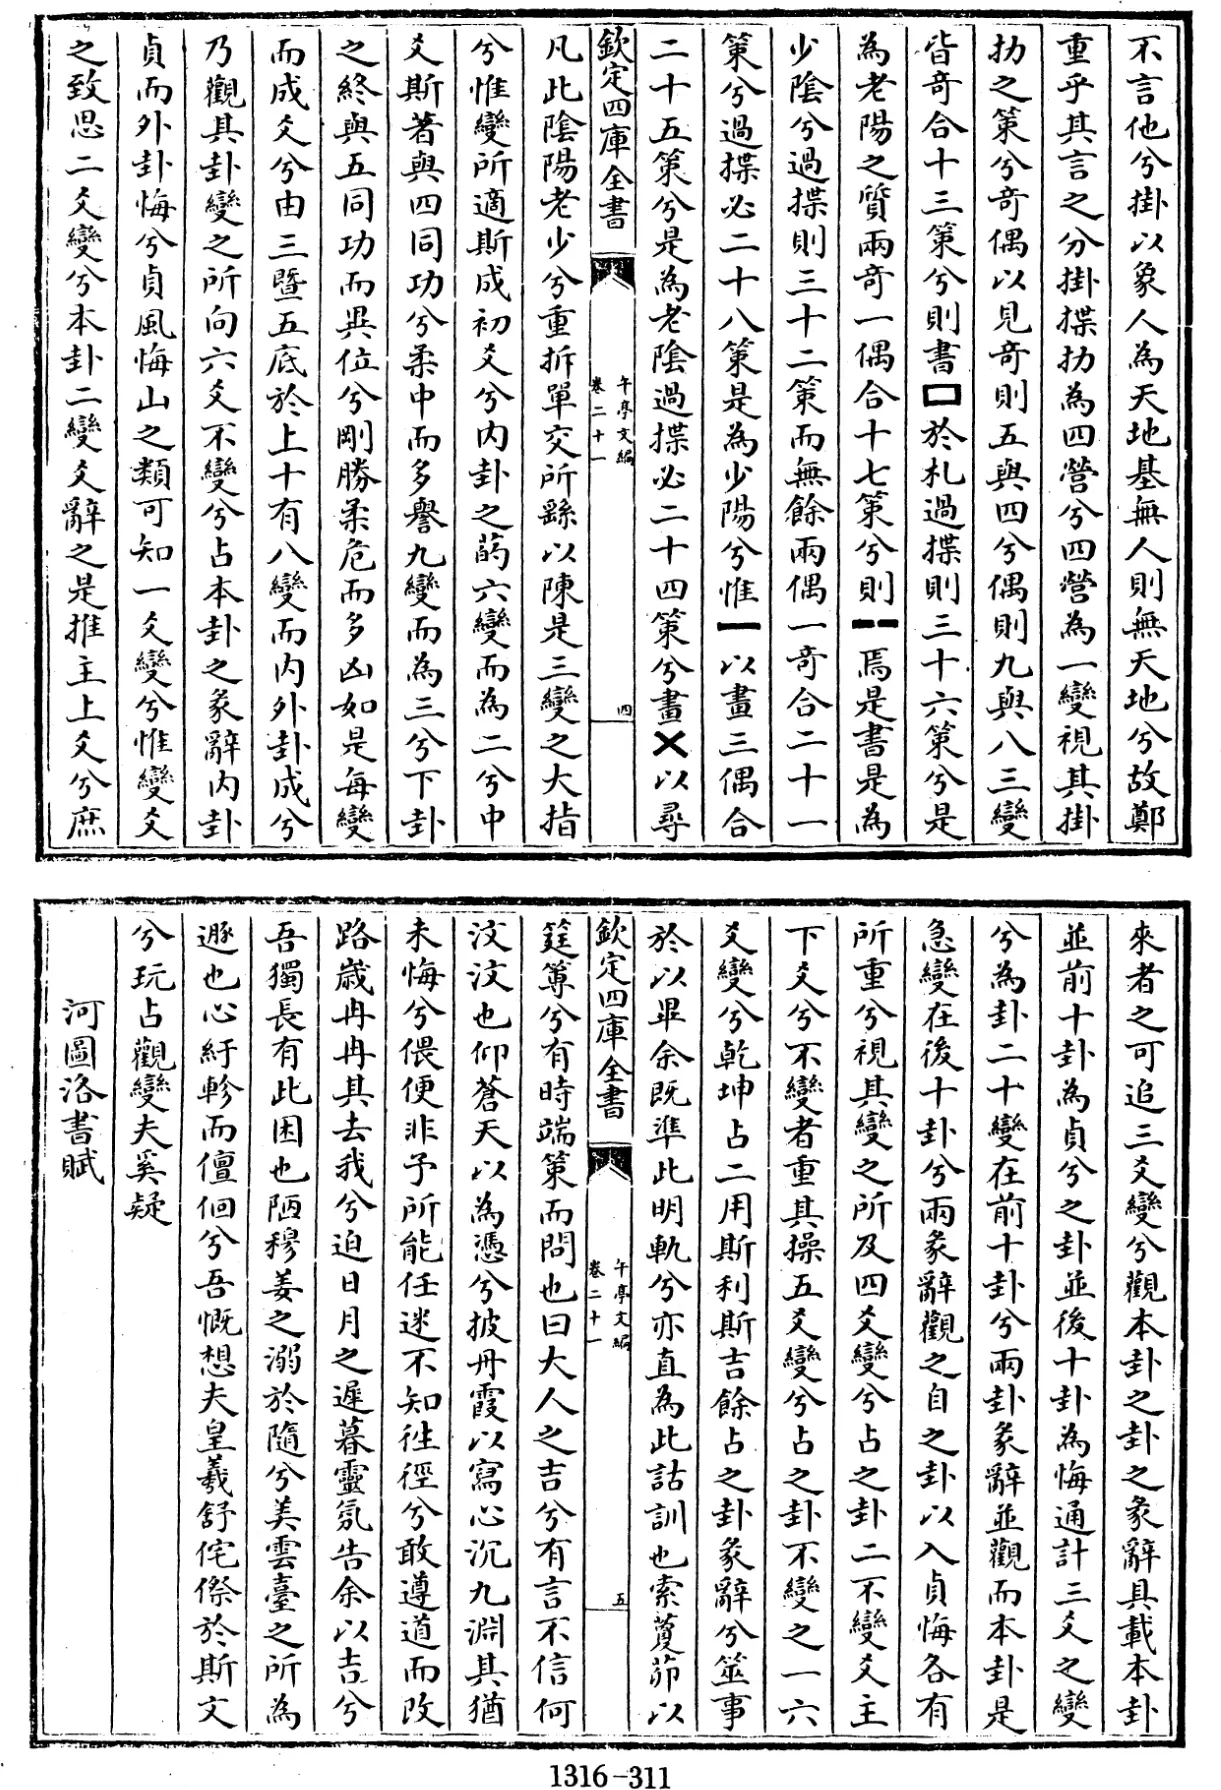 不言他兮掛以象人為天地基無人則無天地兮故鄭
重乎其言之分掛揲扐為四營兮四營為一變視其掛
扐之策兮奇偶以見奇則五與四兮偶則九與八三變
皆奇合十三策兮則書口於札過揲則三十六策兮是
為老陽之質兩奇一偶合十七策兮則--焉是書是為
少陰兮過揲則三十二策而無餘兩偶一奇合二十一
策兮過揲必二十八策是為少陽兮惟一以畫三偶合
二十五策兮是為老陰過揲必二十四策兮畫×以尋
欽定四庫全書
午亭文編
卷二十一
四
凡此陰陽老少兮重拆單交所繇以陳是三變之大指
兮惟變所適斯成初爻兮内卦之菂六變而為二兮中
爻斯著與四同功兮柔中而多譽九變而為三兮下卦
之終與五同功而異位兮剛勝柔危而多凶如是每變
而成爻兮由三暨五底於上十有八變而内外卦成兮
乃觀其卦變之所向六爻不變兮占本卦之彖辭内卦
貞而外卦悔兮貞風悔山之類可知一爻變兮惟變爻
之致思二爻變兮本卦二變爻辭之是推主上爻兮庶
來者之可追三爻變兮觀本卦之卦之彖辭具載本卦
並前十卦為貞兮之卦並後十卦為悔通計三爻之變
兮為卦二十變在前十卦兮兩卦彖辭並觀而本卦是
急變在後十卦兮兩彖辭觀之自之卦以入貞悔各有
所重兮視其變之所及四爻變兮占之卦二不變爻主
下爻兮不變者重其操五爻變兮占之卦不變之一六
爻變兮乾坤占二用斯利斯吉餘占之卦彖辭兮筮事
於以畢余既準此明軌兮亦直為此詁訓也索藑茆以
欽定四庫全書
午亭文編
卷二十一
五
筳篿兮有時端策而問也曰大人之吉兮有言不信何
汶汶也仰蒼天以為憑兮披丹霞以寫心沉九淵其猶
未悔兮偎便非予所能任迷不知徃徑兮敢遵道而改
路歲冉冉其去我兮迫日月之遲暮靈氛告余以吉兮
吾獨長有此困也陋穆姜之溺於隨兮美雲臺之所為
遯也心紆軫而儃佪兮吾慨想夫皇羲舒侘傺於斯文
兮玩占觀變夫奚疑
河圖洛書賦
1316-311